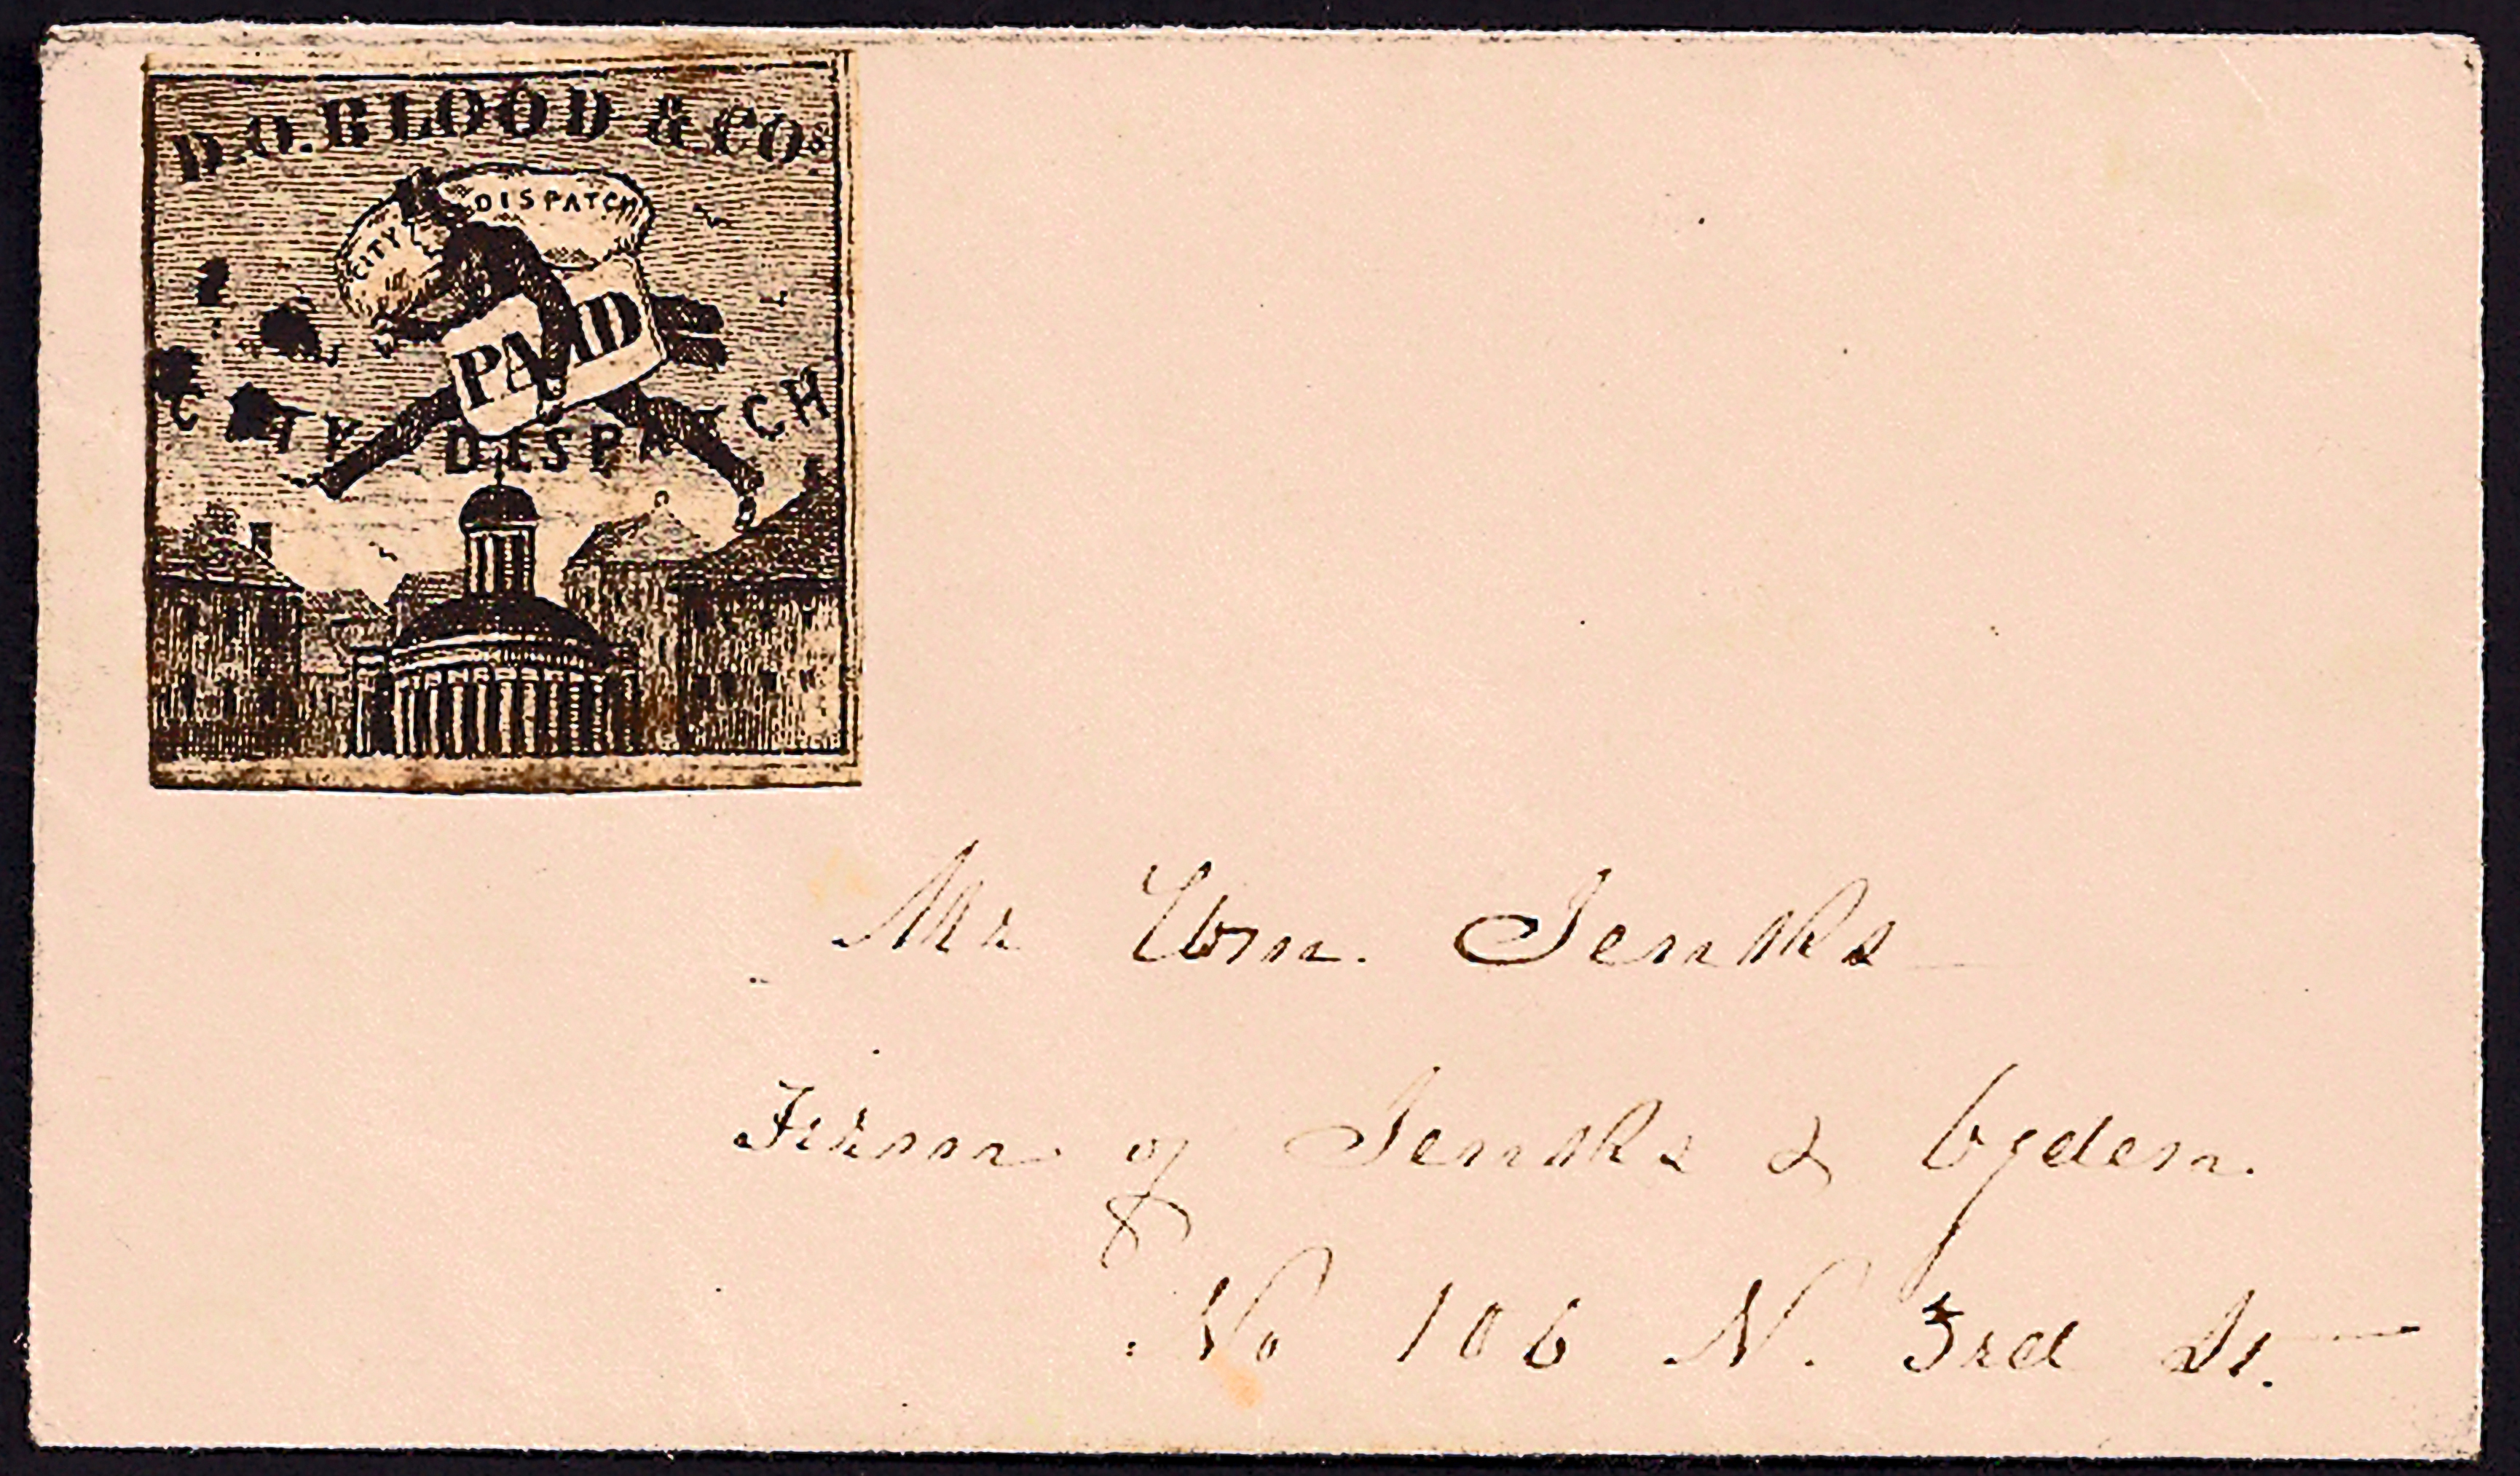 D.O. BLOOD & COs
CITY DISPATCH
PAID
CITY DISPATCH
Mr Wm. Jenks
Firm of Jenks & Ogden.
No 106 N. 3rd St.